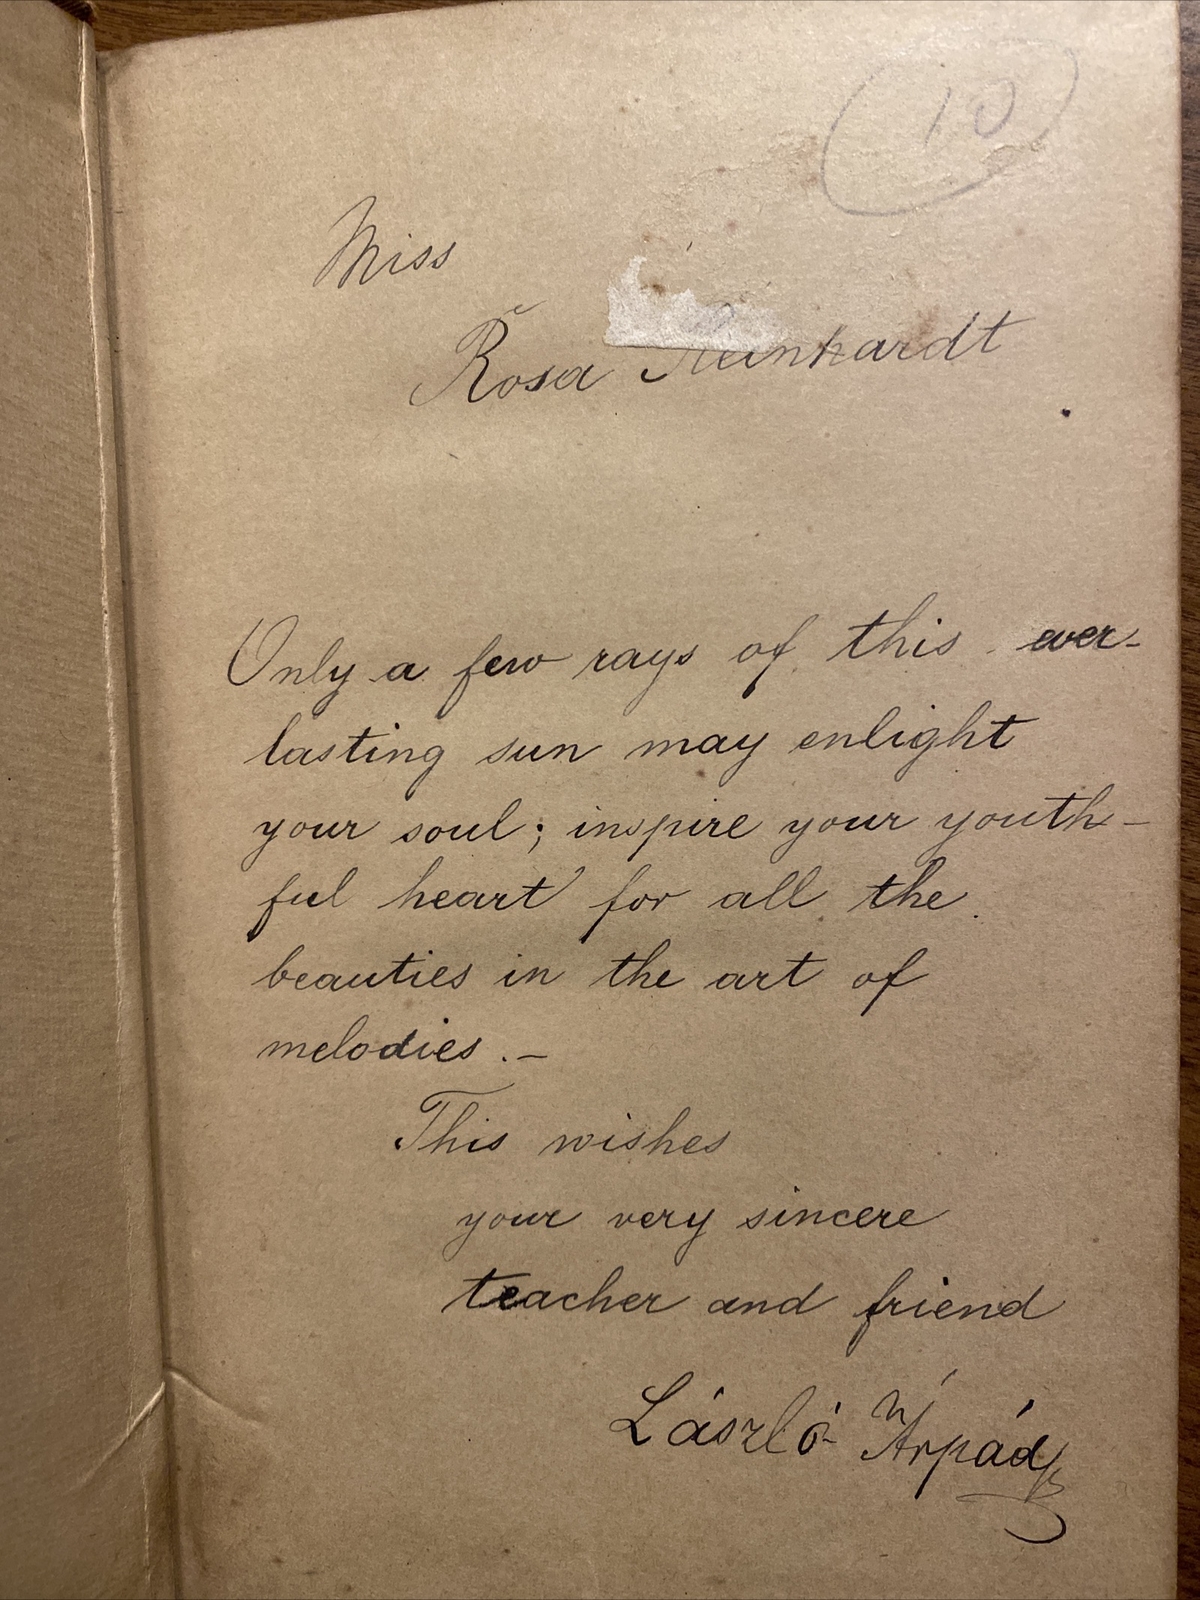 10
Miss
Rosa Reinhardt
Only a few rays of this ever-
lasting sun may enlight
your soul; inspire your youth-
ful heart for all the
beauties in the art of
melodies. —
This wishes
your very sincere
teacher and friend
László Árpád